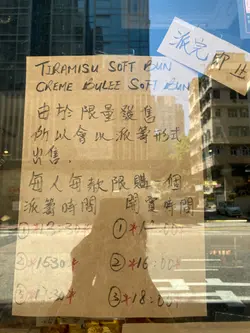 派完即止
TIRAMISU SOFT BUN
CREME BULEE SOFT BUN
由於限量發售
所以會以派籌形式
出售.
每人每款限購一個
派籌時間 開賣時間
① ①
② *1530* ② *16:00*
③ *17:30* ③ *18:00*